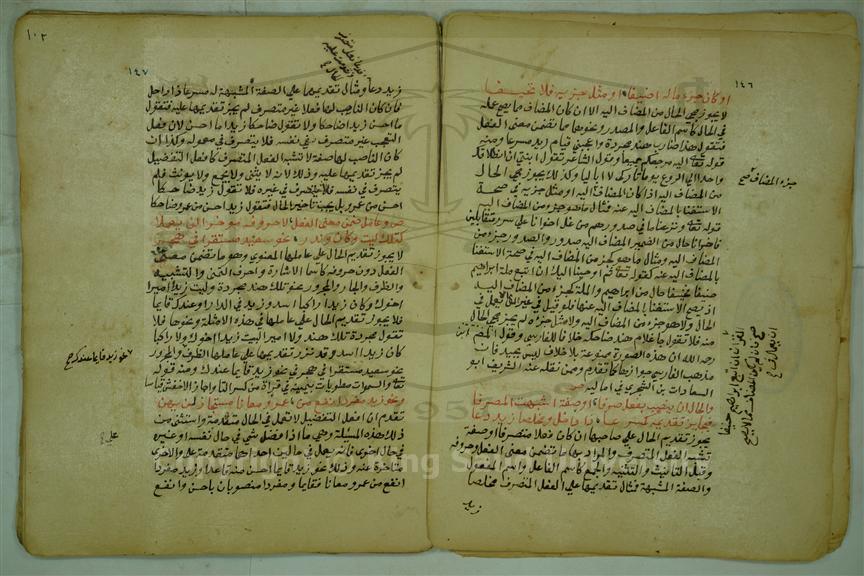 ١٤٦
او كان جزء ماله اضيفا او مثل جزئه فلا تحيفا
لا يجوز مجي الحال من المضاف اليه الا ان كان المضاف مما يصح عمله
في الحال كاسم الفاعل والمصدر ونحوهما مما تضمن معنى الفعل
فتقول هذا ضارب هند مجردة واعجبني قيام زيد مسرعا ومنه
قوله تعالى اليه مرجعكم جميعا وقول الشاعر تقول ابنتي ان انطلاقك
واحدا الى الروع يوما تاركي لا ابا ليا وكذلك يجوز مجي الحال
من المضاف اليه اذا كان المضاف اليه او مثل جزئه في صحة
الاستغنا بالمضاف اليه عنه فمثال ما هو جزء من المضاف اليه
قوله تعالى ونزعنا ما في صدورهم من غل اخوانا على سرر متقابلين
فاخوانا حال من الضمير المضاف اليه صدور والصدور جزء من
المضاف اليه ومثال ما هو كجزء من المضاف اليه في صحة الاستغنا
بالمضاف اليه عنه كقوله تعالى ثم اوحينا اليك ان اتبع ملة ابراهيم
حنيفا فحنيفا حال من ابراهيم والملة كجزء من المضاف اليه
اذ يصح الاستغنا بالمضاف اليه عنها فلو قيل في غير القران
الحال ولا هو جزء من المضاف اليه ولا مثل جزئه لم يجز مجي الحال
منه فلا تقول جا غلام هند ضاحكة خلافا للفارسي وقول المصنف ابن
رحمه الله ان هذه الصورة ممنوعة بلا خلاف ليس بجيد فان
مذهب الفارسي جوازها كما تقدم وممن نقله عنه الشريف ابو
السعادات بن الشجري في اماليه ص
والحال ان ينصب بفعل صرفا او صفة اشبهت المصرفا
فجايز تقديمه كمسرعا ذا راحل ومخلصا زيد دعا
يجوز تقديم الحال على صاحبها ان كان فعلا متصرفا او صفة
تشبه الفعل المتصرف والمراد بها ما تضمن معنى الفعل وحروفه
وقبل التانيث والتثنية والجمع كاسم الفاعل واسم المفعول
والصفة المشبهة فمثال تقديمها على الفعل المتصرف مخلصا
زيد
جزء المضاف صح
١٠٢
١٤٧
زيد دعا ومثال تقديمها على الصفة المشبهة له مسرعا ذا راحل
فان كان الناصب لها فعلا غير متصرف لم يجز تقديمها عليه فتقول
ما احسن زيدا ضاحكا ولا تقول ضاحكا زيدا ما احسن لان فعل
التعجب غير متصرف في نفسه فلا يتصرف في معموله وكذا ان
كان الناصب لها صفة لا تشبه الفعل المتصرف كافعل التفضيل
لم يجز تقديمها عليه وذلك لانه لا يثنى ولا يجمع ولا يونث فلم
يتصرف في نفسه فلا يتصرف في غيره فلا تقول زيد ضاحكا
احسن من عمرو بل يجب تاخير الحال فتقول زيد احسن من عمرو ضاحكا
ص وعامل ضمن معنى الفعل لا حروفه موخرا لن يعملا
كتلك ليت وكان وندر نحو سعيد مستقرا في هجر
لا يجوز تقديم الحال على عاملها المعنوي وهو ما تضمن معنى
الفعل دون حروفه كاسما الاشارة واحرف التمني والتشبيه
والظرف والجار والمجرور نحو تلك هند مجردة وليت زيدا اميرا
اخوك وكان زيدا راكبا اسد وزيد في الدار او عندك قايما
فلا يجوز تقديم الحال على عاملها في هذه الامثلة ونحوها فلا
تقول مجردة تلك هند ولا اميرا ليت زيدا اخوك ولا راكبا
كان زيدا اسد وقد نزر تقديمها على عاملها الظرف والمجرور
نحو سعيد مستقرا في هجر نحو زيد قايما عندك ومنه قوله
تعالى والسموات مطويات بيمينه في قراءة من كسر التا واجازه الاخفش قياسا
ونحو زيد مفردا انفع من عمرو معانا مستجاز لن يهن
تقدم ان افعل التفضيل لا تعمل في الحال متقدمة واستثنى من
ذلك هذه المسيلة وهي ما اذا فضل شي في حال نفسه او غيره
في حال اخرى فانه يعمل في حالين احداهما متقدمة عليه والاخرى
متاخرة عنه وذلك نحو زيد قايما احسن منه قاعدا وزيد مفردا
انفع من عمرو معانا فقايما ومفردا منصوبان باحسن وانفع